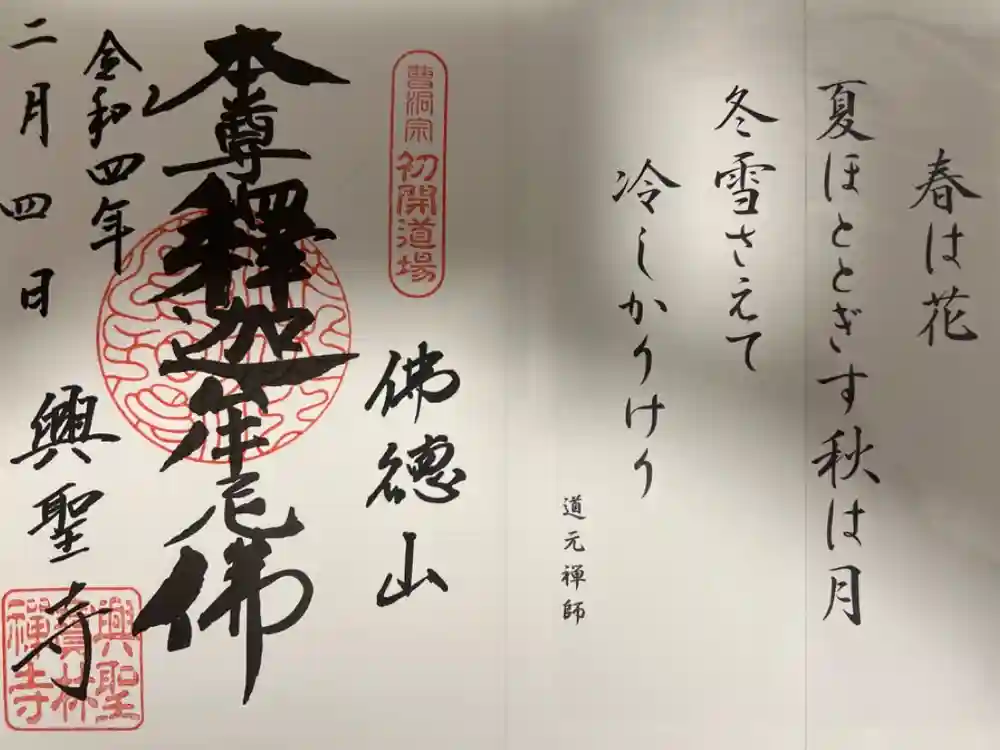 春は花
夏ほととぎす秋は月
冬雪さえて
冷しかりけり
道元禅師
曹洞宗
初開道場
佛德山
本尊
釋迦牟尼佛
令和四年
二月四日
興聖寺
興聖
寳林
禅寺